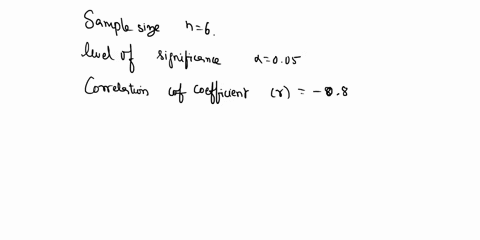 Sample size n=6.
level of significance α=0.05
Correlation cof coefficient (r) = -0.8